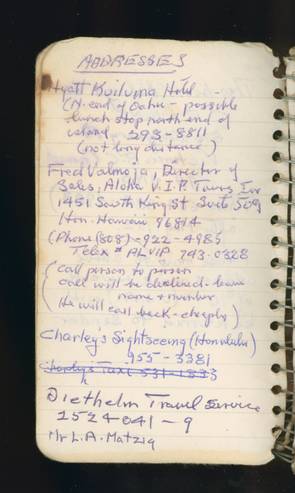 ADDRESSES
Hyatt Kuilima Hotel -
(N. end of Oahu - possible
lunch stop north end of
island 293-8811
(not long distance)
Fred Valmoja, Director of
Sales, Aloha V.I.P. Tours Inc
1451 South King St. Suite 509
Hon. Hawaii 96814
(Phone (808) - 922-4985
Telex # ALVIP 743-0328
(Call person to person
call will be declined - leave
name + number
He will call back - cheaply)
Charley's Sightseeing (Honolulu)
955-3381
Charley's Taxi 531-1333
Diethelm Travel Service
2524-041-9
Mr L.A. Matzig